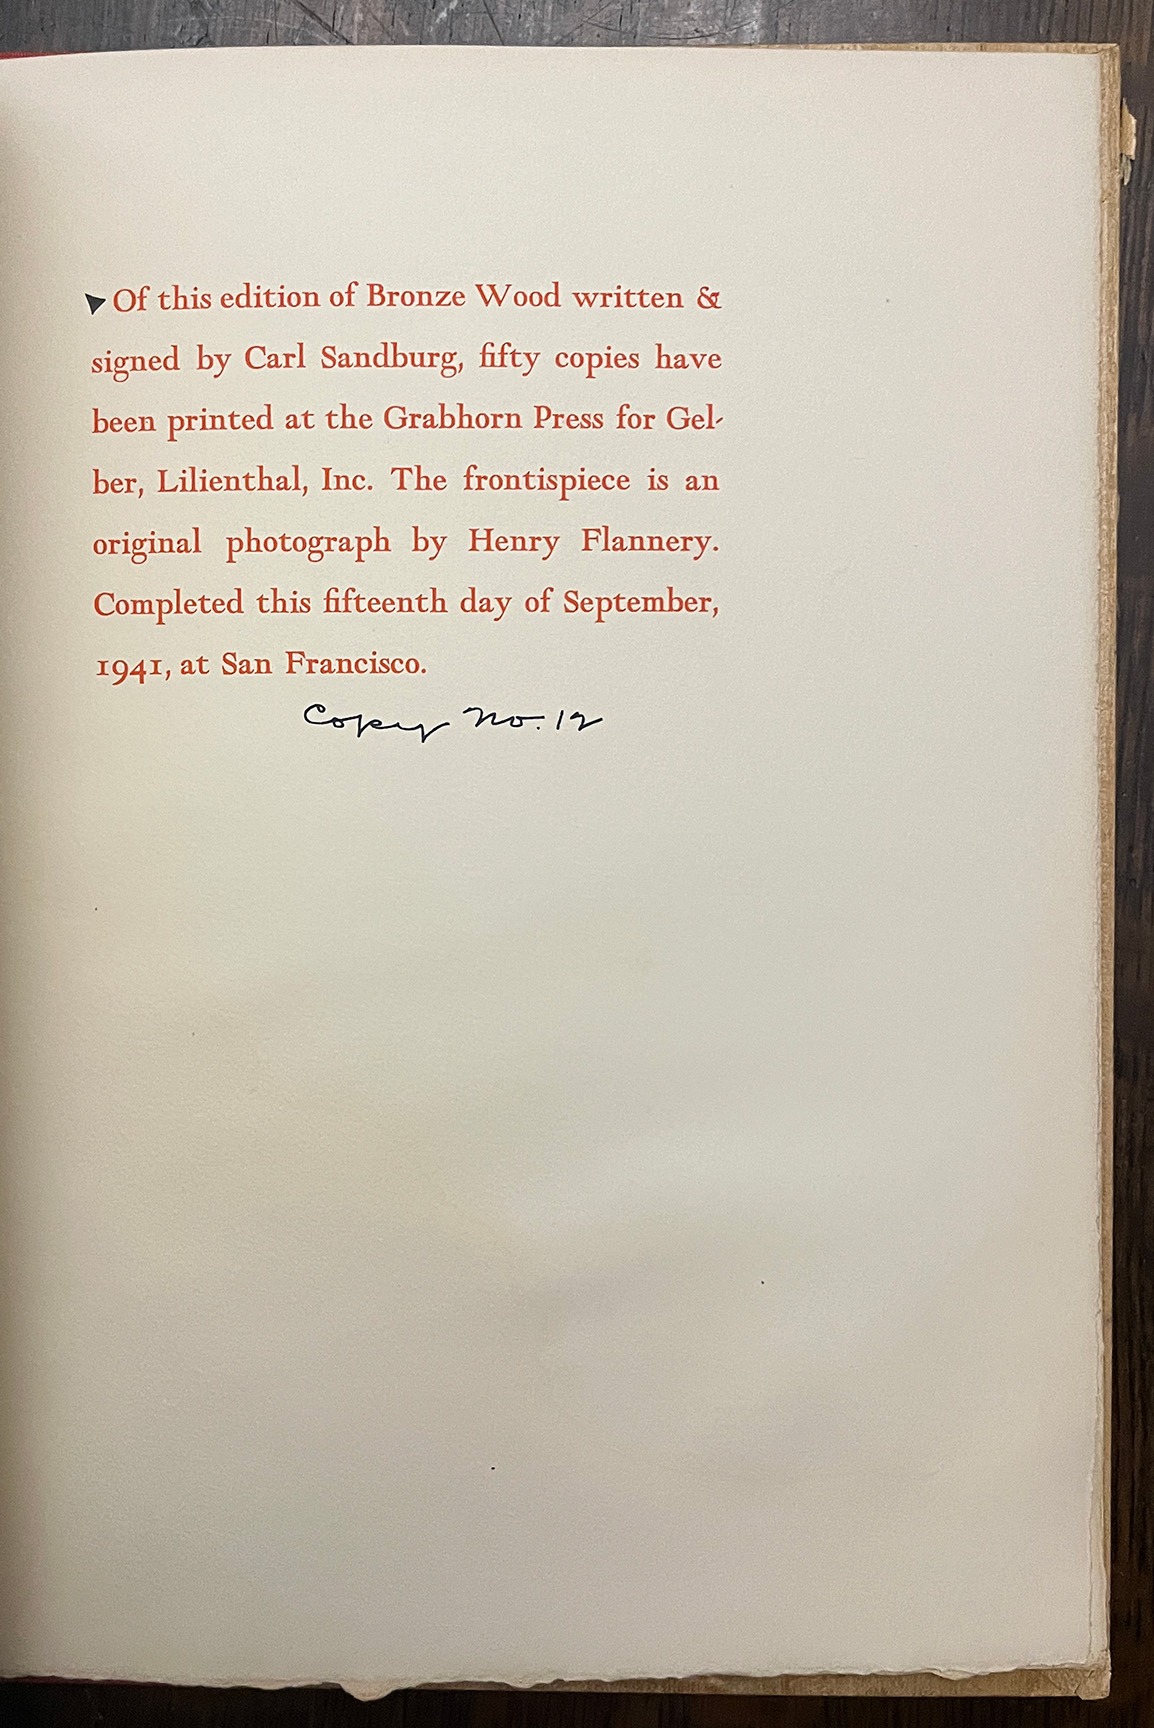 Of this edition of Bronze Wood written &
signed by Carl Sandburg, fifty copies have
been printed at the Grabhorn Press for Gel-
ber, Lilienthal, Inc. The frontispiece is an
original photograph by Henry Flannery.
Completed this fifteenth day of September,
1941, at San Francisco.
Copy No. 12